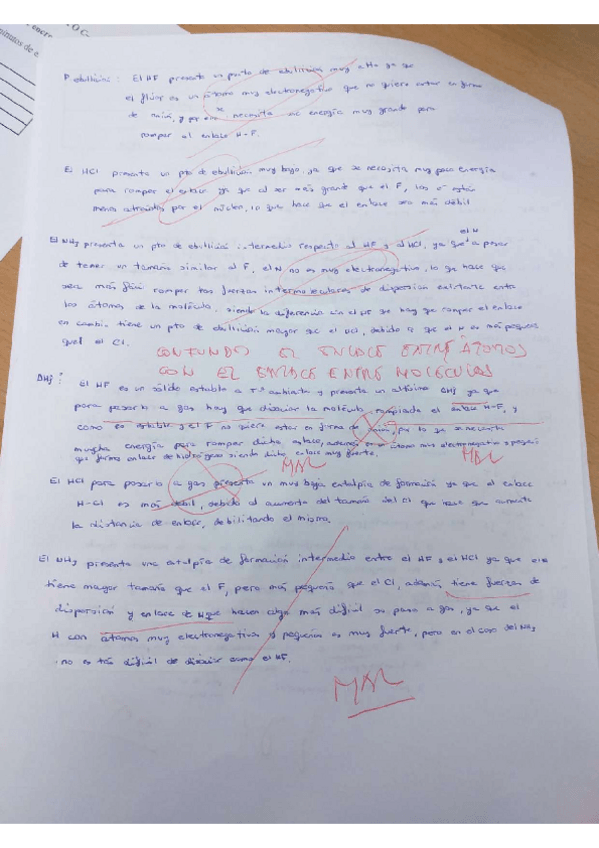 O C-
encre
minutos de e
P ebullición: El HF presenta un punto de ebullición muy alto ya que
el flúor es un átomo muy electronegativo que no quiere estar en forma
de unión, y por eso necesita una energía muy grande para
romper el enlace H-F.
El HCl presenta un pto de ebullición muy bajo, ya que se necesita muy poca energía
para romper el enlace ya que al ser más grande que el F, los e⁻ están
menos atraídos por el núcleo, lo que hace que el enlace sea más débil
el N
El NH3 presenta un pto de ebullición intermedio respecto al HF y al HCl, ya que a pesar
de tener un tamaño similar al F, el N no es muy electronegativo, lo que hace que
sea más fácil romper las fuerzas intermoleculares de dispersión existente entre
los átomos de la molécula, siendo la diferencia en el pe que hay que romper el enlace
en cambio tiene un pto de ebullición mayor que el HCl, debido a que el N es más pequeño
que el Cl.
CONFUNDES EL ENLACE ENTRE ÁTOMOS
CON EL ENLACE ENTRE MOLÉCULAS
ΔHf: El HF es un sólido estable a Tª ambiente y presenta un altísimo ΔHf ya que
para pasarlo a gas hay que disociar la molécula rompiendo el enlace H-F, y
como es estable y el F no quiere estar en forma de unión, por lo que se necesita
mucha energía para romper dicho enlace, además, es un átomo más electronegativo y pequeño
que forma enlace de hidrógeno siendo dicho enlace muy fuerte.
MAL
MAL
El HCl para pasarlo a gas presenta un muy baja entalpia de formación ya que el enlace
H-Cl es más débil, debido al aumento del tamaño del Cl que hace que aumente
la distancia de enlace, debilitando el mismo.
El NH3 presenta una entalpía de formación intermedia entre el HF y el HCl ya que ese
tiene mayor tamaño que el F, pero más pequeño que el Cl, además tiene fuerzas de
dispersión y enlace de H que hacen algo más difícil su paso a gas, ya que el
H con átomos muy electronegativos y pequeños es muy fuerte, pero en el caso del NH3
no es tan difícil de disociar como el HF.
MAL